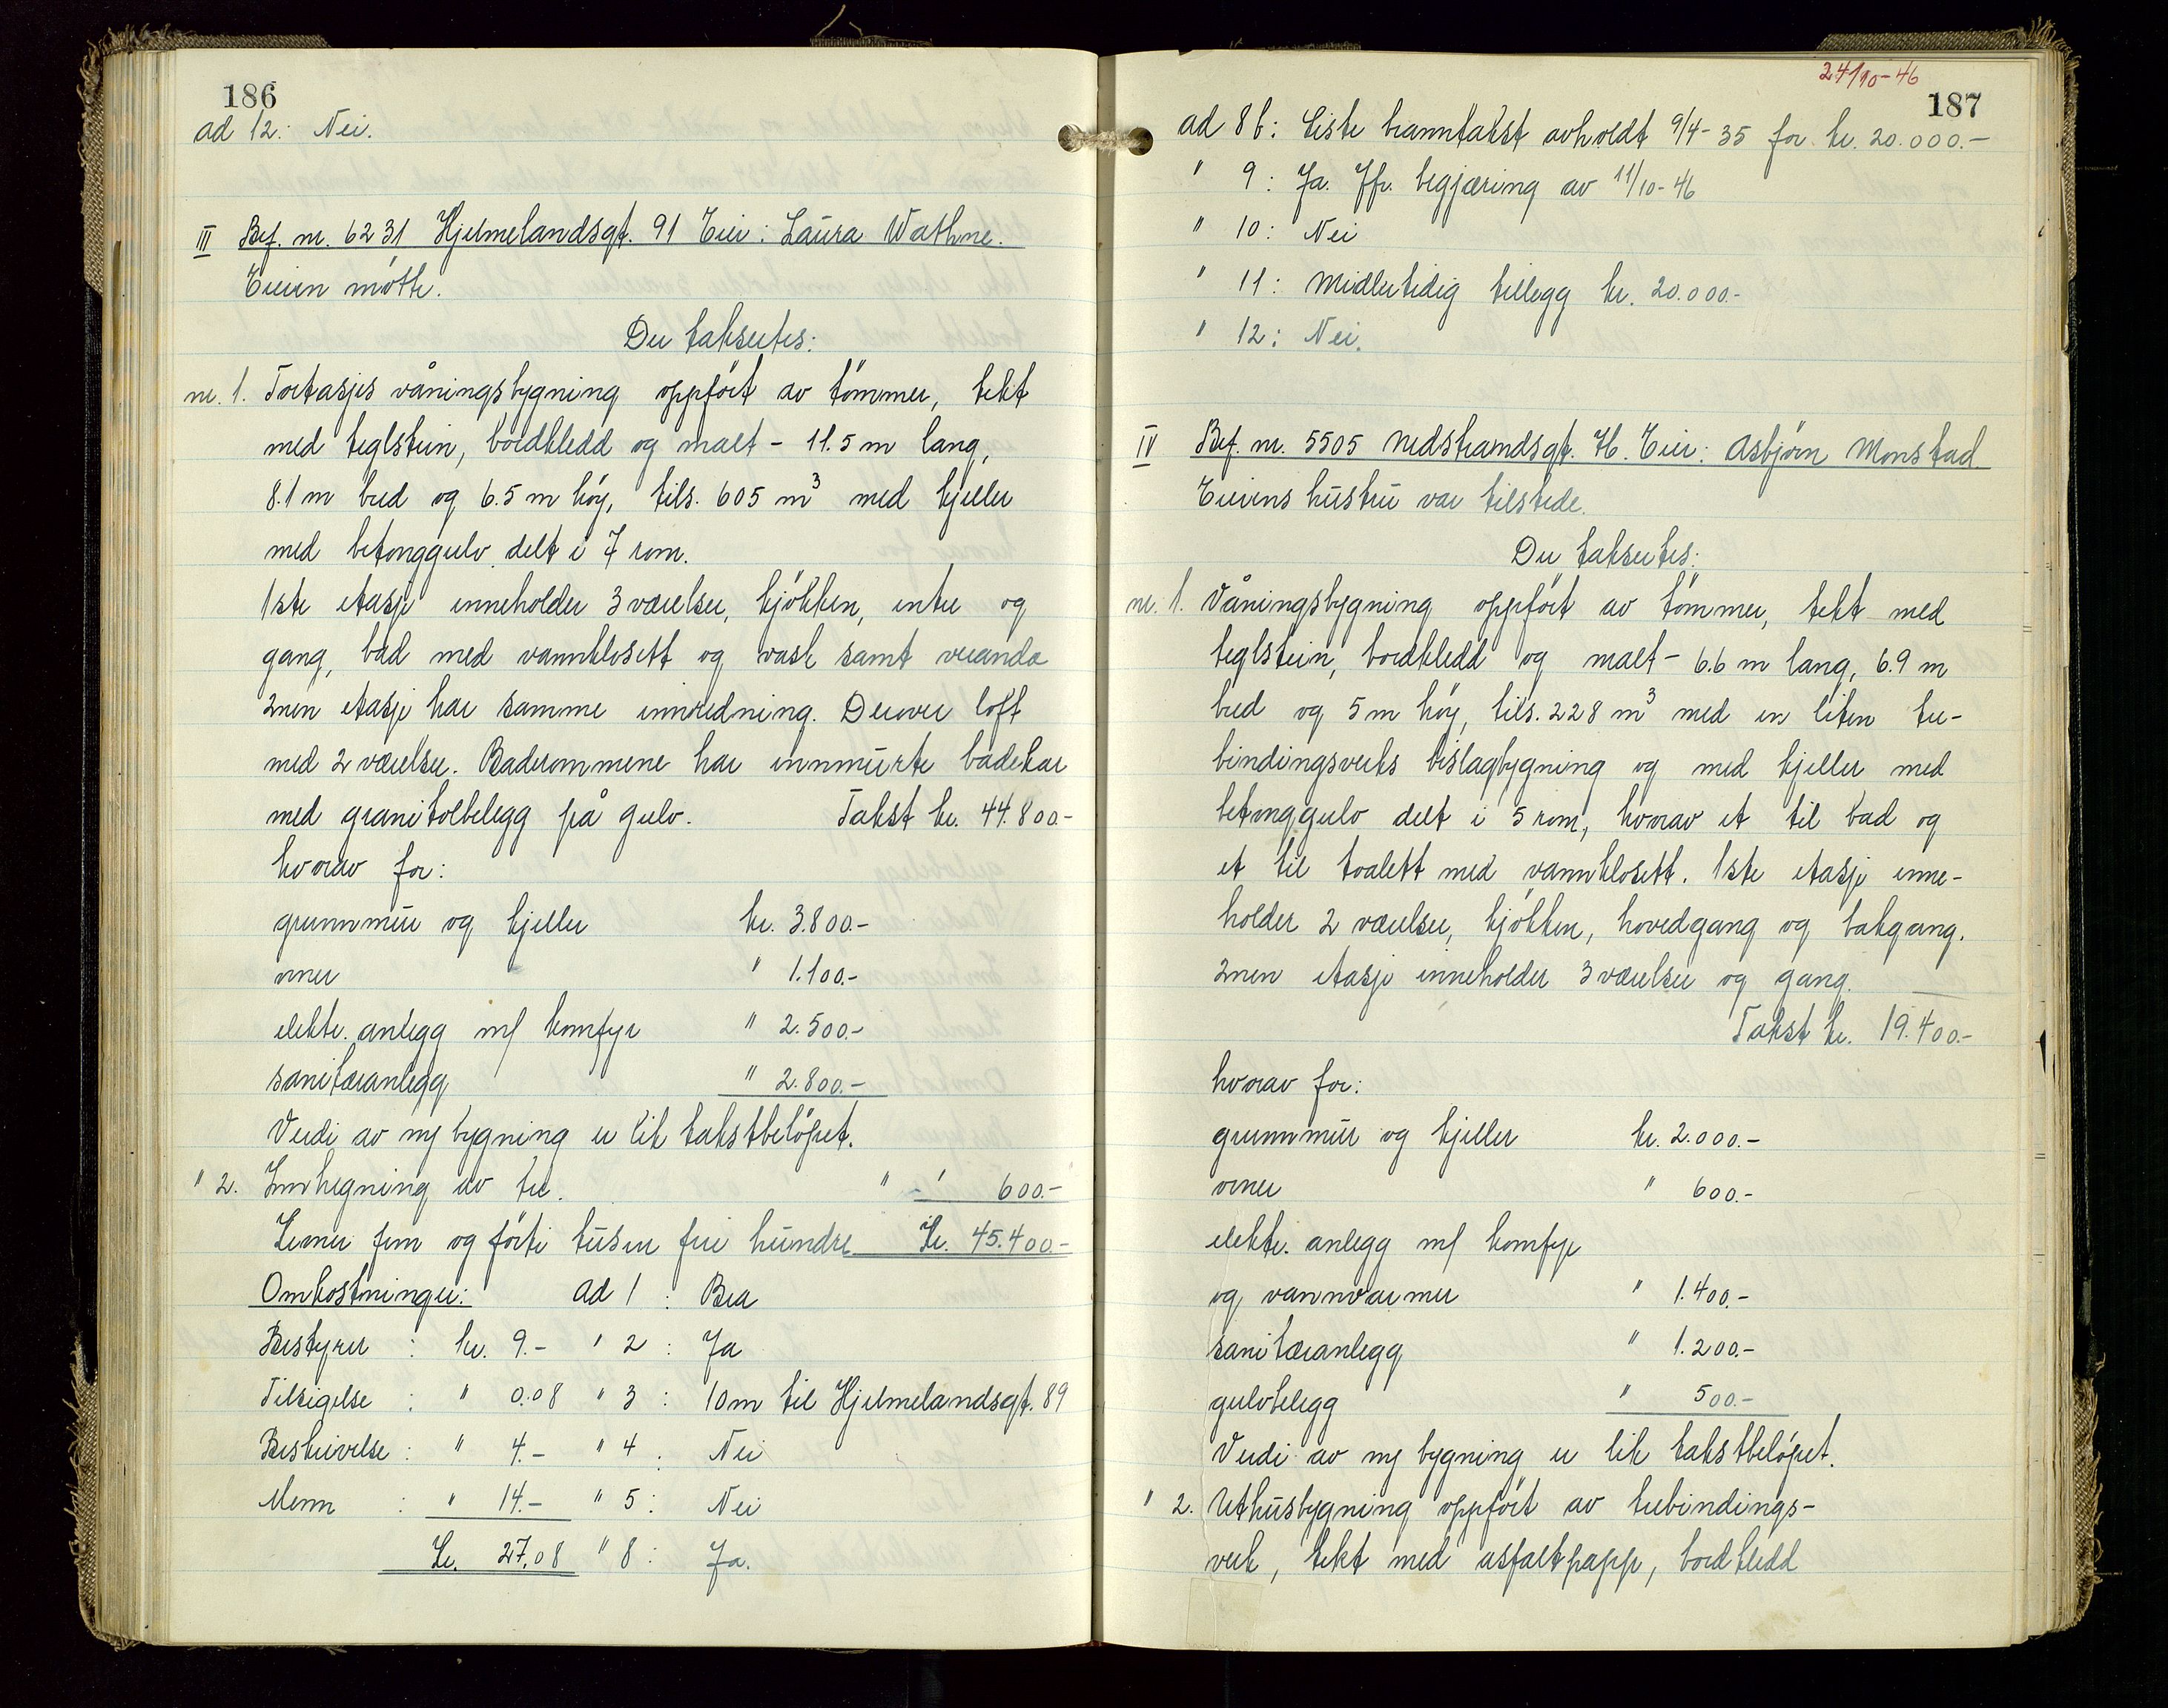 186
ad 12: Nei.
III Bef. nr. 6231 Hjelmelandsgt. 91 Eier: Laura Wathne.
Eieren møtte.
Der takseres:
nr. 1. Toetasjes våningsbygning oppført av tømmer, tekt
med teglstein, bordkledd og malt - 11.5 m lang,
8.1 m bred og 6.5 m høy, tils. 605 m³ med kjeller
med betonggulv delt i 7 rom.
1ste etasje inneholder 3 værelser, kjøkken, entre og
gang, bad med vannklosett og vask samt veranda
2nen etasje har samme innredning. Derover loft
med 2 værelser. Baderommene har innmurte badekar
med granitolbelegg på gulv. Takst kr. 44.800.-
hvorav for:
grunnmur og kjeller kr. 3.800.-
ovner " 1.100.-
elektr. anlegg m/ komfyr " 2.500.-
sanitæranlegg " 2.800.-
Verdi av ny bygning er lik takstbeløpet.
" 2. Innhegning av tre. " " 600.-
Kroner fem og førti tusen fire hundre Kr. 45.400.-
Omkostninger: ad 1 : Bra
Bestyrer : kr. 9.- " 2 : Ja
Tilsigelse : " 0.08 " 3 : 10 m til Hjelmelandsgt. 89
Beskrivelse : " 4.- " 4 : Nei
Menn : " 14.- " 5 : Nei
Kr. 27.08 " 8 : Ja.
24/10-46
187
ad 8 b: Siste branntakst avholdt 9/4-35 for kr. 20.000.-
" 9 : Ja. Jfr. begjæring av 11/10-46
" 10 : Nei
" 11 : Midlertidig tillegg kr. 20.000.-
" 12 : Nei.
IV Bef. nr. 5505 Nedstrandsgt. 46. Eier: Asbjørn Monstad
Eierens hustru var tilstede.
Der takseres:
nr. 1. Våningsbygning oppført av tømmer, tekt med
teglstein, bordkledd og malt - 6.6 m lang, 6.9 m
bred og 5 m høy, tils. 228 m³ med en liten tre-
bindingsverks bislagbygning og med kjeller med
betonggulv delt i 5 rom, hvorav et til bad og
et til toalett med vannklosett. 1ste etasje inne-
holder 2 værelser, kjøkken, hovedgang og bakgang.
2nen etasje inneholder 3 værelser og gang.
Takst kr. 19.400.-
hvorav for:
grunnmur og kjeller kr. 2.000.-
ovner " 600.-
elektr. anlegg m/ komfyr
og vannvarmer " 1.400.-
sanitæranlegg " 1.200.-
gulvbelegg " 500.-
Verdi av ny bygning er lik takstbeløpet.
" 2. Uthusbygning oppført av trebindings-
verk, tekt med asfaltpapp, bordkledd